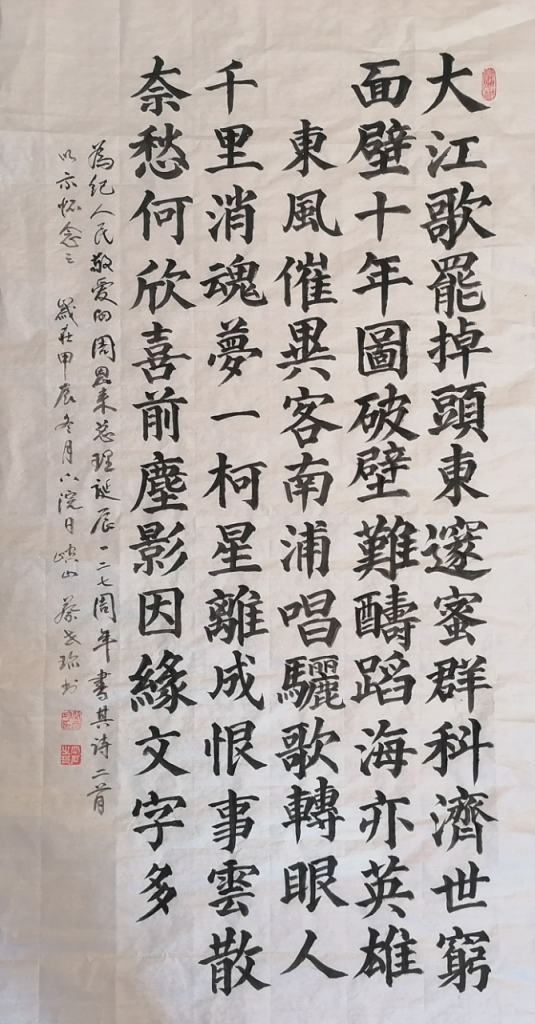 大江歌罷掉頭東邃蜜群科濟世窮
面壁十年圖破壁難醻蹈海亦英雄
東風催異客南浦唱驪歌轉眼人
千里消魂夢一柯星離成恨事雲散
奈愁何欣喜前塵影因緣文字多
為紀人民敬愛的周恩来总理誕辰一二七周年書其詩二首
以示怀念之 歲在甲辰冬月 浣日 山 蔡 书